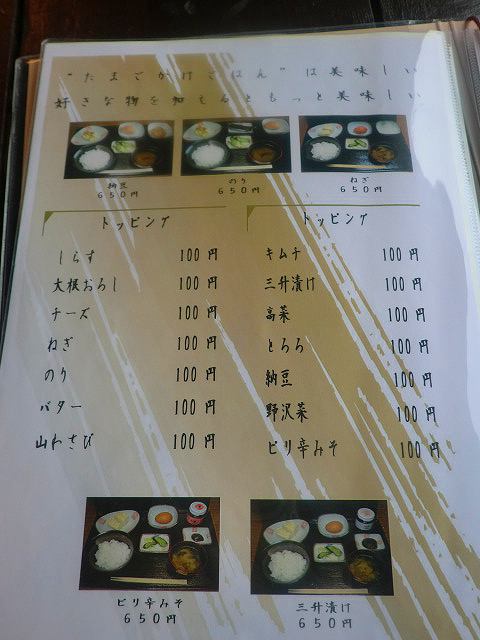 "たまごかけごはん"は美味しい
好きな物を加えるともっと美味しい
納豆
650円
のり
650円
ねぎ
650円
トッピング
しらす 100円
大根おろし 100円
チーズ 100円
ねぎ 100円
のり 100円
バター 100円
山わさび 100円
トッピング
キムチ 100円
三升漬け 100円
高菜 100円
とろろ 100円
納豆 100円
野沢菜 100円
ピリ辛みそ 100円
ピリ辛みそ
650円
三升漬け
650円